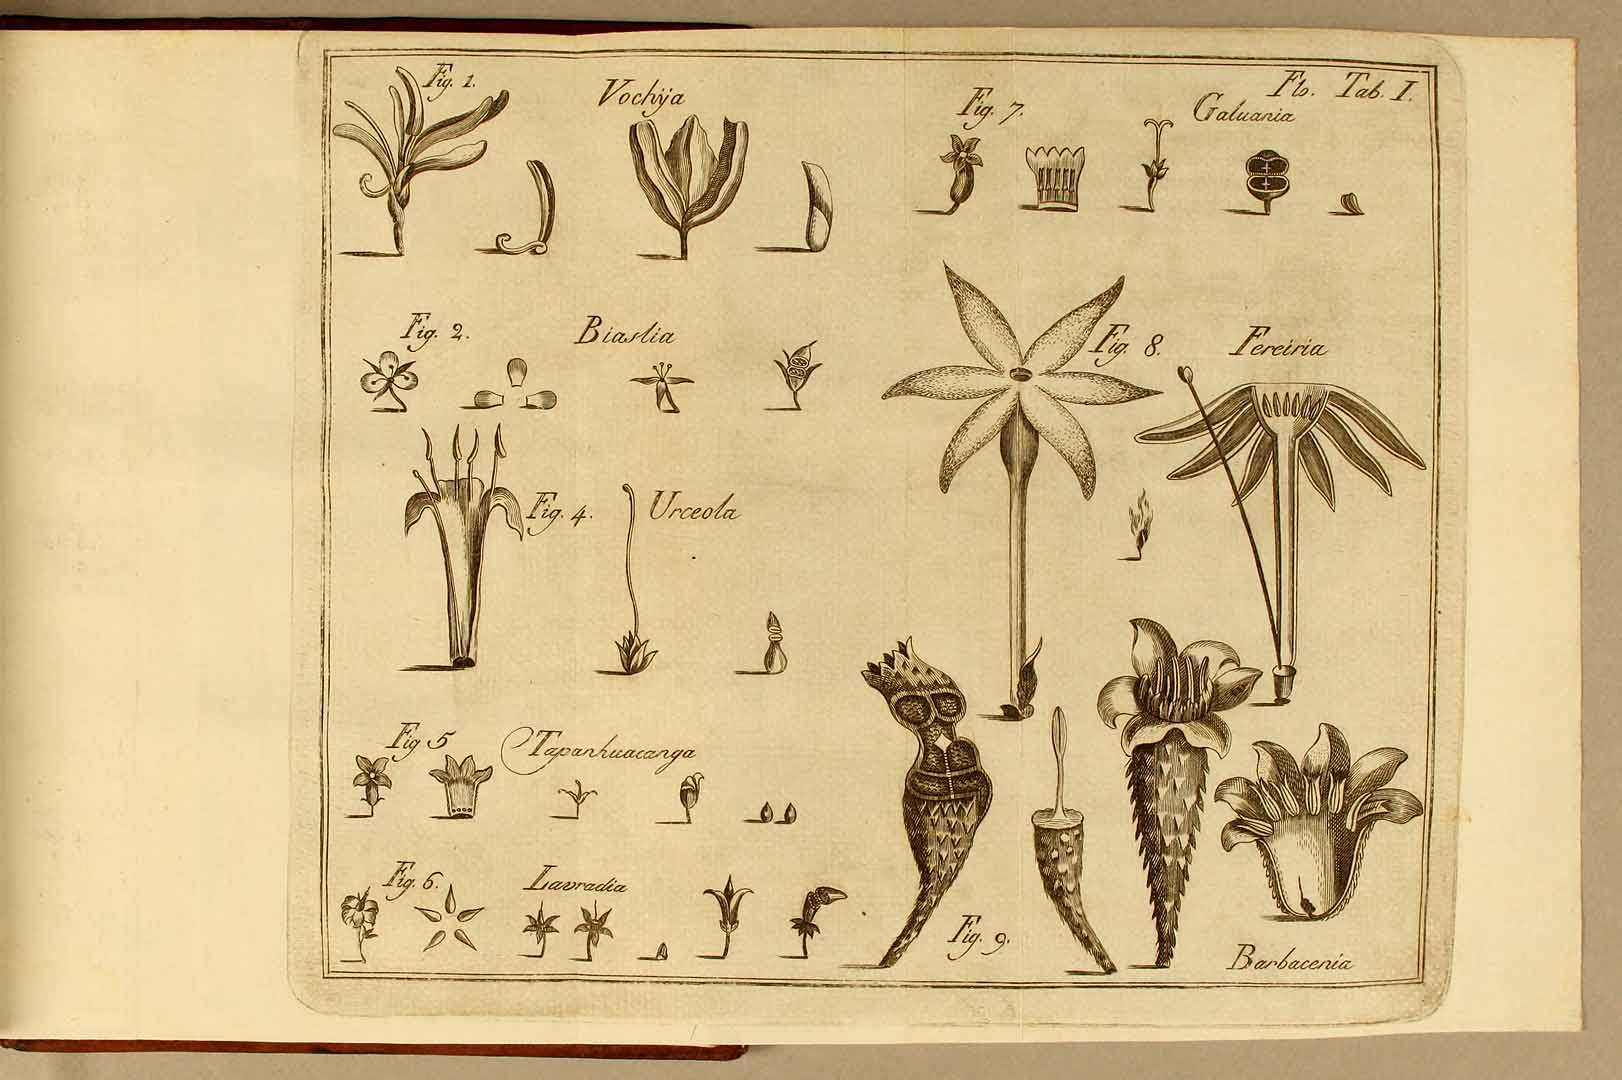 Flo. Tab. I.
Fig. 1. Vochÿa
Fig. 7. Galuania
Fig. 2. Biaslia
Fig. 8. Fereiria
Fig. 4. Urceola
Fig 5 Tapanhuacanga
Fig. 6. Lavradia
Fig. 9. Barbacenia